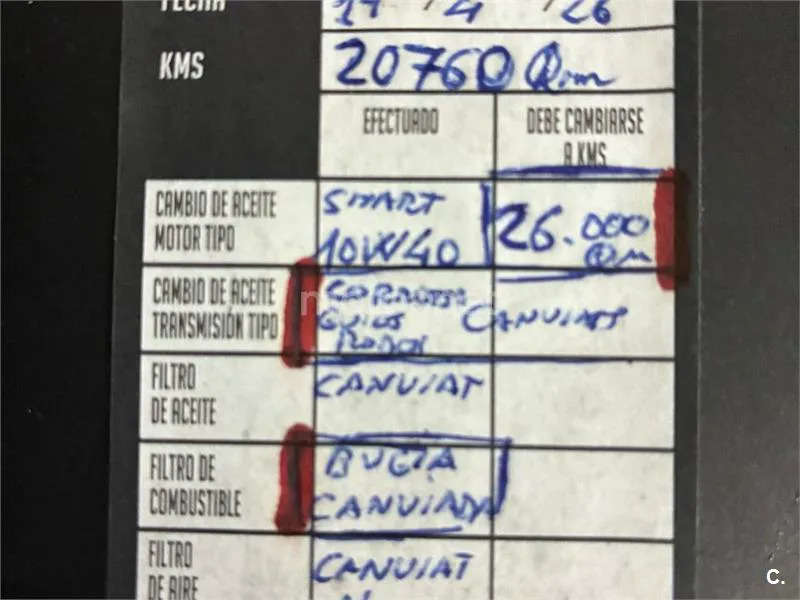 FECHA 14 / 4 / 26
KMS 20760 Qm
EFECTUADO DEBE CAMBIARSE
A KMS
CAMBIO DE ACEITE SMART 26.000
MOTOR TIPO 10W40 Qm
CAMBIO DE ACEITE CORRETJA
TRANSMISIÓN TIPO CANVIATS
FILTRO CANVIAT
DE ACEITE
FILTRO DE BUGIA
COMBUSTIBLE CANVIADA
FILTRO CANVIAT
DE AIRE
C.